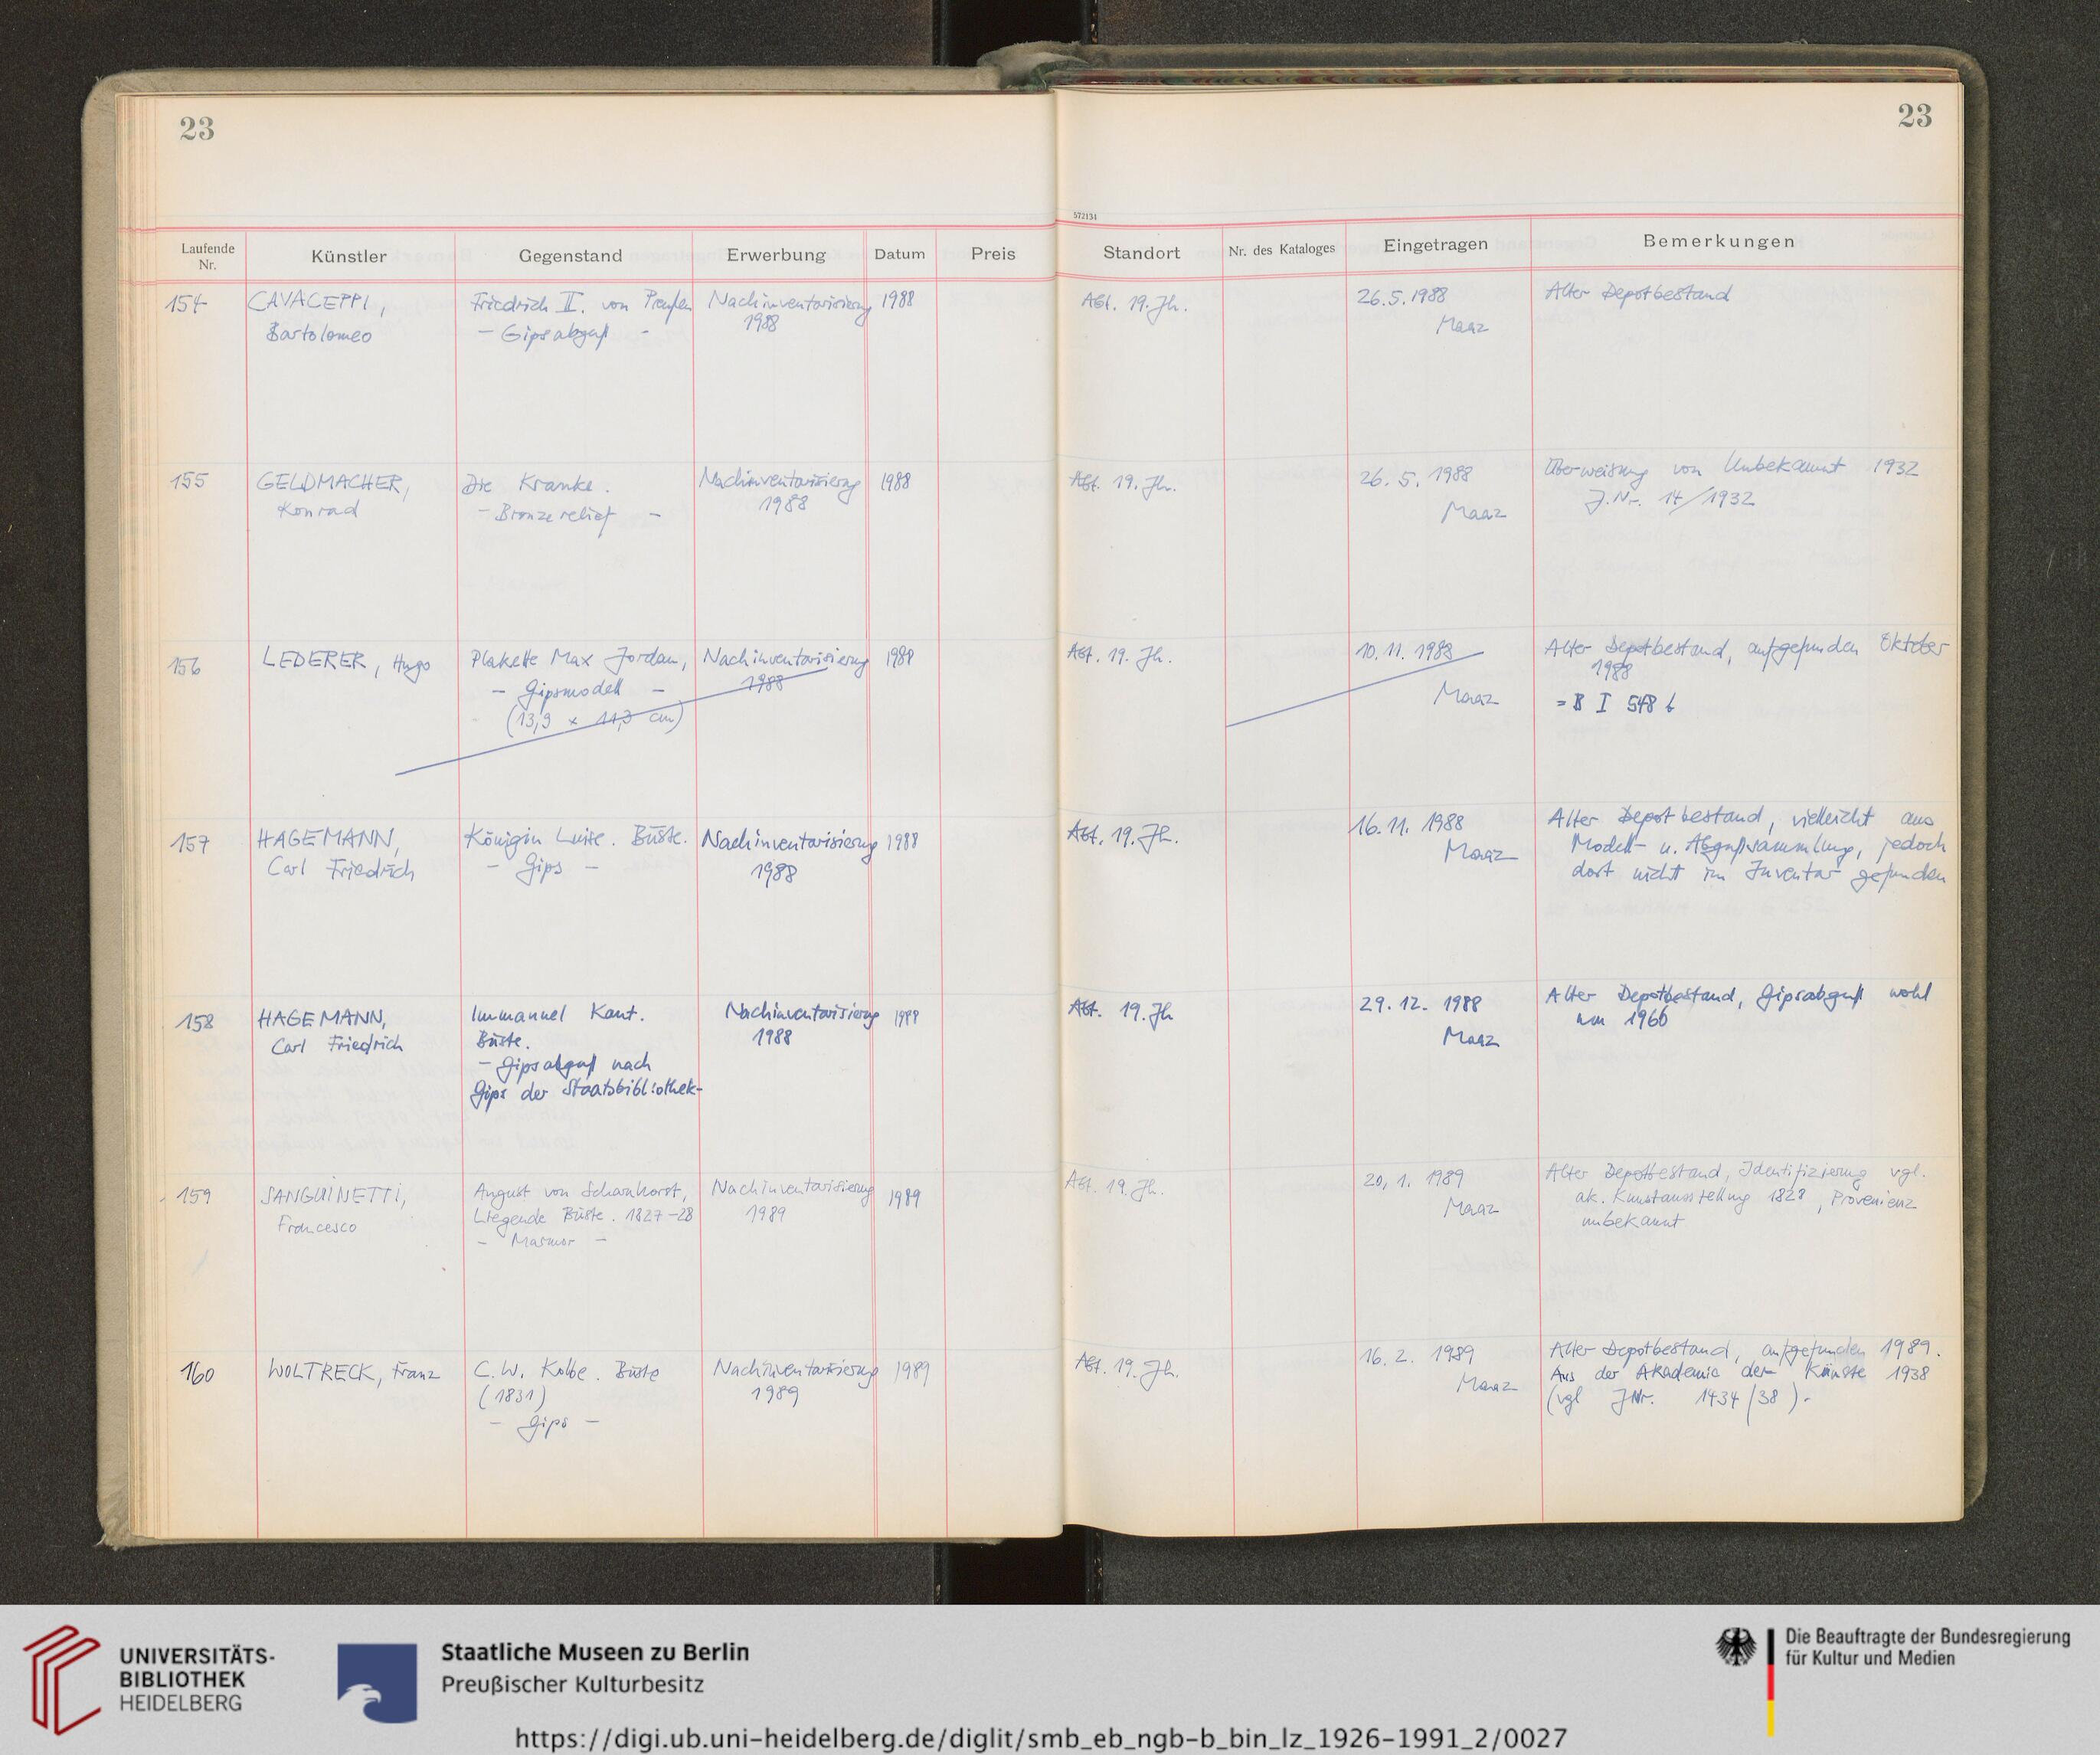 23
23
572134
Laufende Nr.
Künstler
Gegenstand
Erwerbung
Datum
Preis
Standort
Nr. des Kataloges
Eingetragen
Bemerkungen
154
CAVACEPPI,
Bartolomeo
Friedrich II. von Preußen
- Gipsabguß -
Nachinventarisierung
1988
1988
Abt. 19. Jh.
26.5.1988
Maaz
Alter Depotbestand
155
GELDMACHER,
Konrad
Die Kranke.
- Bronzerelief -
Nachinventarisierung
1988
1988
Abt. 19. Jh.
26. 5. 1988
Maaz
Überweisung von Unbekannt 1932
J.Nr. 14/1932
156
LEDERER, Hugo
Plakette Max Jordan,
- Gipsmodell -
(13,9 x 11,3 cm)
Nachinventarisierung
1988
1988
Abt. 19. Jh.
10. 11. 1988
Maaz
Alter Depotbestand, aufgefunden Oktober
1988
= B I 548 b
157
HAGEMANN,
Carl Friedrich
Königin Luise. Büste.
- Gips -
Nachinventarisierung
1988
1988
Abt. 19. Jh.
16. 11. 1988
Maaz
Alter Depotbestand, vielleicht aus
Modell- u. Abgußsammlung, jedoch
dort nicht im Inventar gefunden
158
HAGEMANN,
Carl Friedrich
Immanuel Kant.
Büste.
- Gipsabguß nach
Gips der Staatsbibliothek-
Nachinventarisierung
1988
1988
Abt. 19. Jh
29. 12. 1988
Maaz
Alter Depotbestand, Gipsabguß wohl
um 1960
159
SANGUINETTI,
Francesco
August von Scharnhorst,
Liegende Büste. 1827-28
- Marmor -
Nachinventarisierung
1989
1989
Abt. 19. Jh.
20. 1. 1989
Maaz
Alter Depotbestand, Identifizierung vgl.
ak. Kunstausstellung 1828, Provenienz
unbekannt
160
WOLTRECK, Franz
C. W. Kolbe. Büste
(1831)
- Gips -
Nachinventarisierung
1989
1989
Abt. 19. Jh.
16. 2. 1989
Maaz
Alter Depotbestand, aufgefunden 1989.
Aus der Akademie der Künste 1938
(vgl JNr. 1434/38).
UNIVERSITÄTS-
BIBLIOTHEK
HEIDELBERG
Staatliche Museen zu Berlin
Preußischer Kulturbesitz
Die Beauftragte der Bundesregierung
für Kultur und Medien
https://digi.ub.uni-heidelberg.de/diglit/smb_eb_ngb-b_bin_lz_1926-1991_2/0027